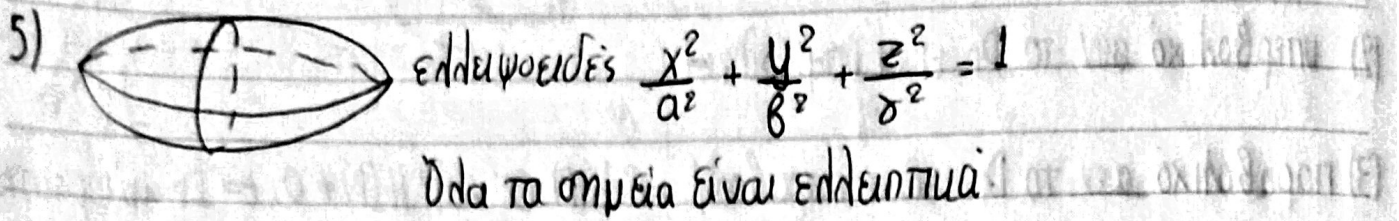 5) ελλειψοειδές x²/α² + y²/β² + z²/γ² = 1
Όλα τα σημεία είναι ελλειπτικά